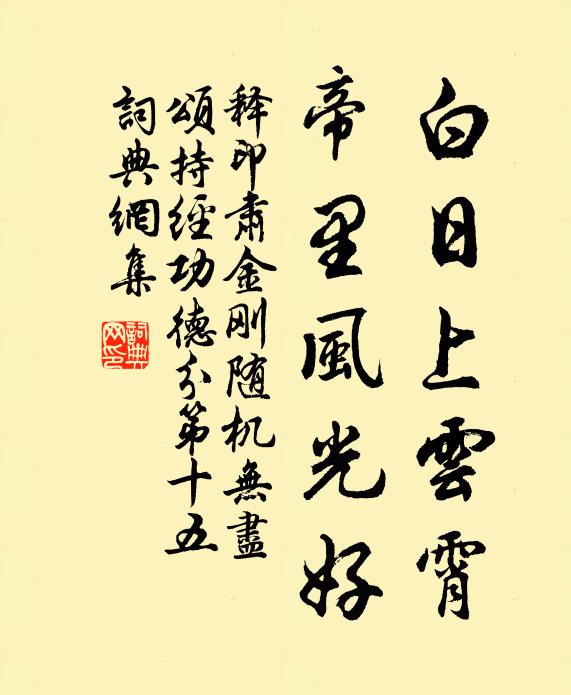 白日上雲霄
帝里風光好
释印肅金刚随机無盡
頌持經功德分第十五
詞典網集
詞典網印